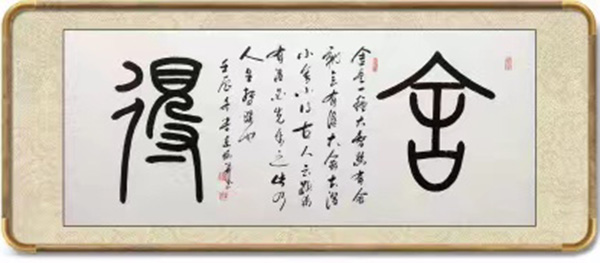 舍
舍是一種大智慧有舍
就会有得大舍大得
小舍小得古人云欲
有得必先舍之此乃
人生哲理也
壬辰年李建
得